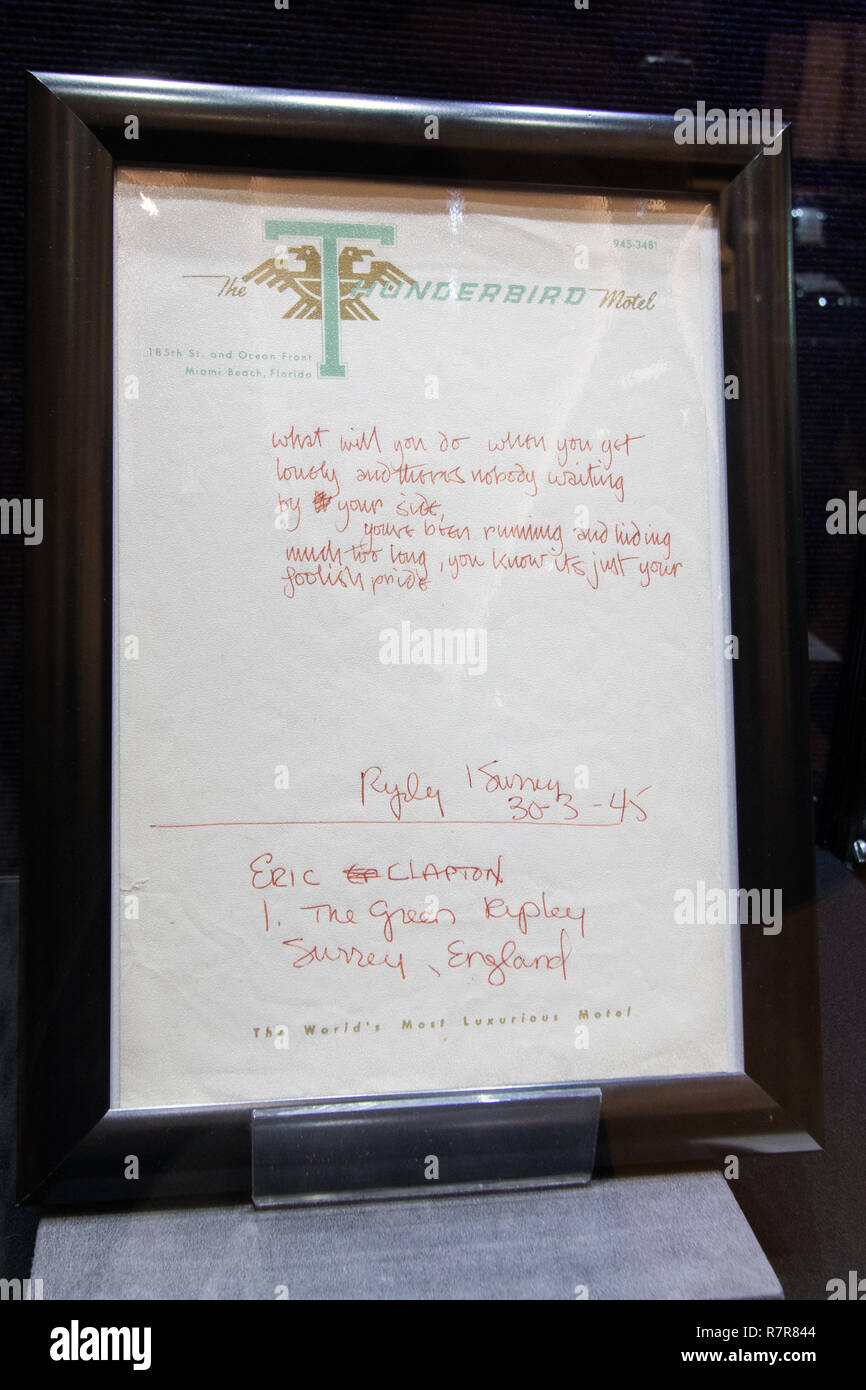 945-3481
The THUNDERBIRD Motel
185th St. and Ocean Front
Miami Beach, Florida
what will you do when you get
lonely and theres nobody waiting
by your side,
youve been running and hiding
much too long, you know its just your
foolish pride
Ryply 1 Surrey
30-3-45
ERIC CLAPTON
1. The Green Ripley
Surrey, England
The World's Most Luxurious Motel
alamy
Image ID: R7R844
www.alamy.com